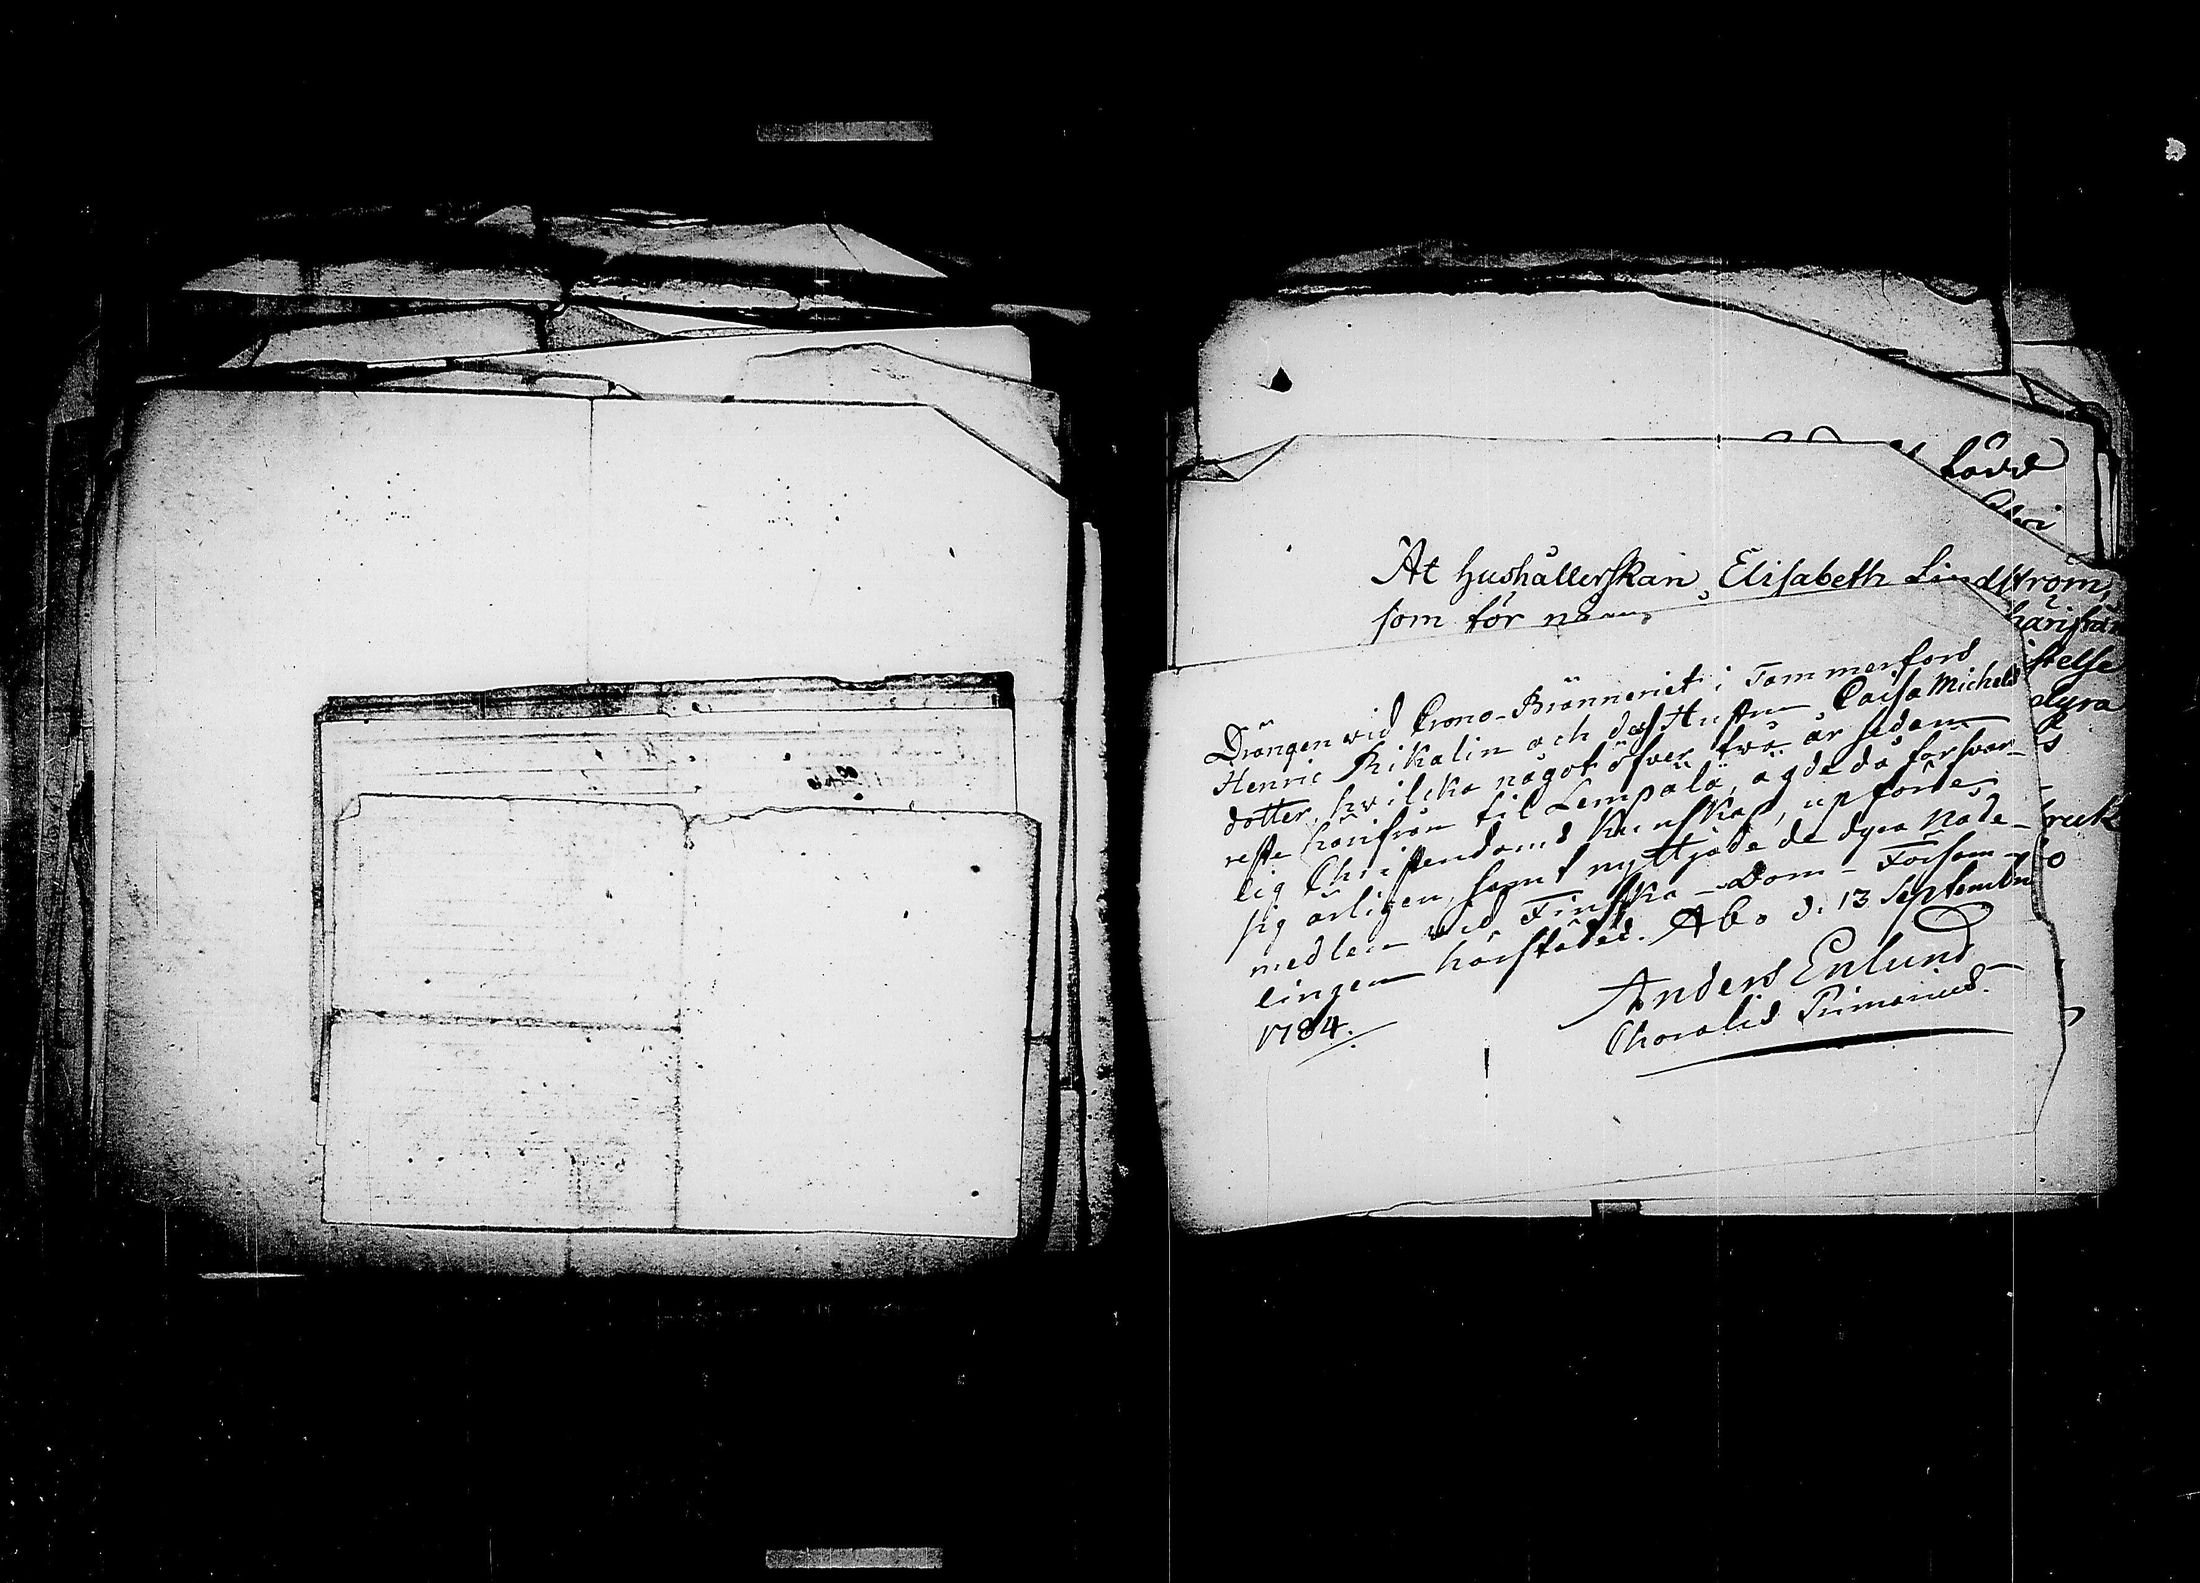 Lovd
At hushållerskan, Elisabeth Lindström,
som för
härifrån
Drängen wid Crono-Bränneriet i Tammerfors
Henric Rikalin och dess Hustru Caisa Michels
dotter, hvilcka något öfver två år sedan
reste härifrån til Lempälä, ägde då försvar-
lig Christendoms Kunskap, upförde
sig ärligen, samt nyttjade de dyra Nåde-
medlen vid Finska Dom-Försam-
lingen härstädes. Åbo d. 13 September
1784.
Anders Enlund
Choralis Primarius.
stelse
dyra
ruk